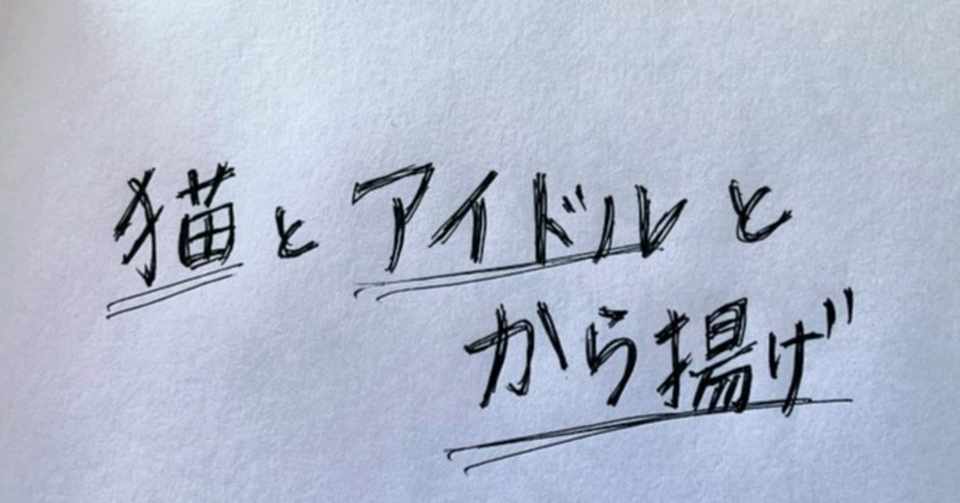 猫とアイドルと
から揚げ